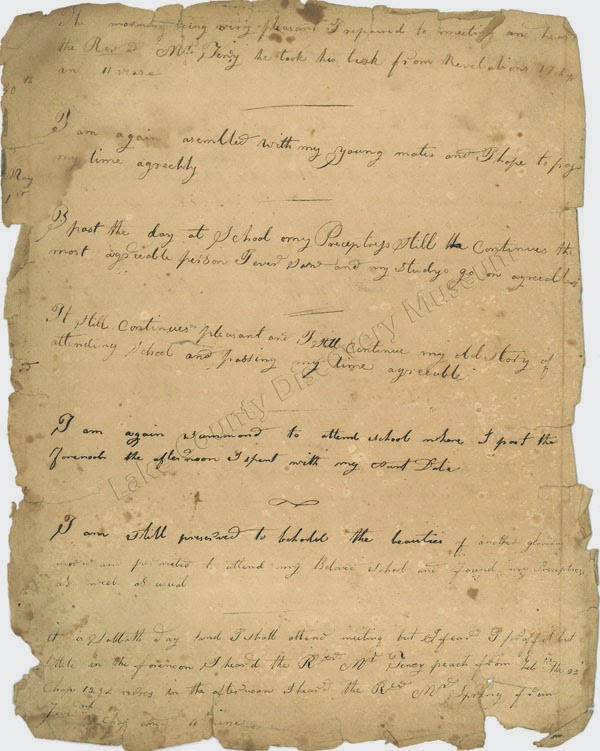 The morning being very pleasant I repaired to meeting and hear
the Rev.d Mr. he took his text from Revelations 17
an 11 verse
I am again asembled with my young mates and I hope to pass
my time agreebly
May
I past the day at School my Preceptress still continues the
most agreeable person I ever saw and my studys go on agreeable
It still continues pleasant and I still continue my old story of
attending School and passing my time agreeable
I am again sammond to attend school where I past the
forenoon the afternoon I spent with my aunt
I am still preserved to behold the beauties of another glorious
morn am permited to attend my Beloved School and found my Preceptress
as well as usual
it is Sabbath day and I shall attend meeting but I fear I proffit but
little in the forenoon I heard the Rred Mr peach from the
Chap 12 verses in the afternoon I heard the Rred Mr Spring from
Lake County Discovery Museum